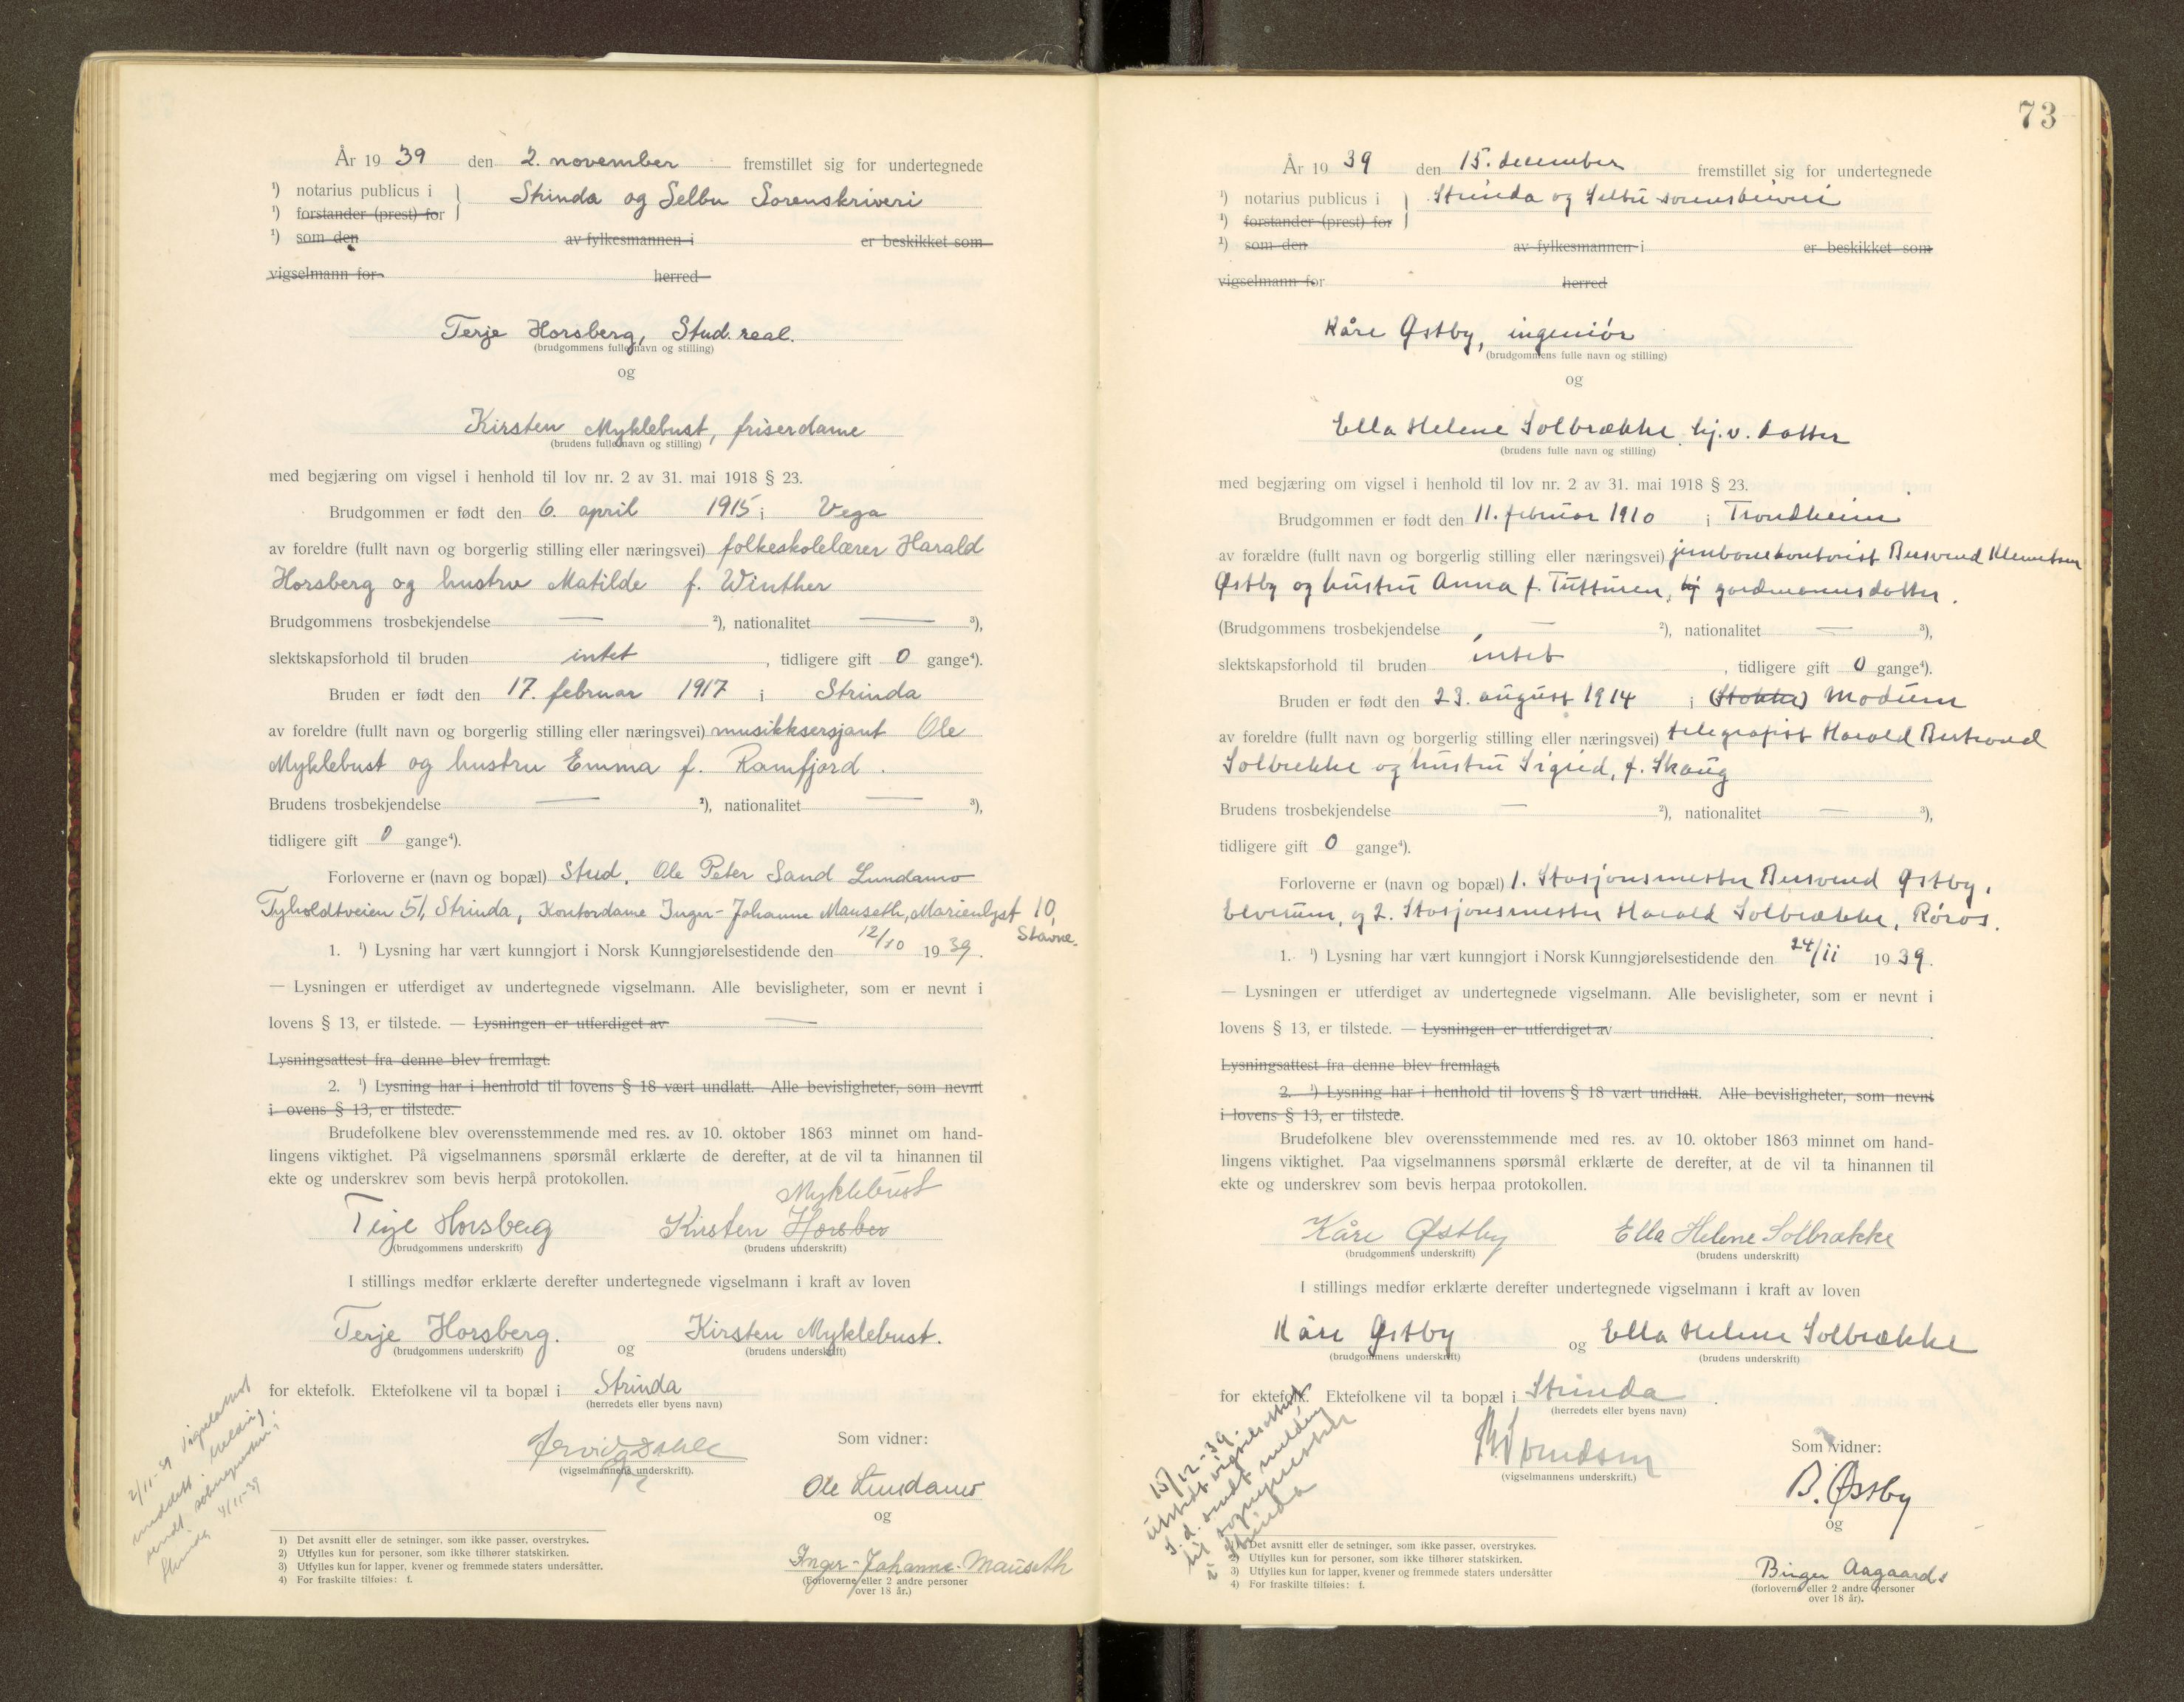 År 19 39 den 2. november fremstillet sig for undertegnede
¹) notarius publicus i } Strinda og Selbu Sorenskriveri
¹) forstander (prest) for
¹) som den av fylkesmannen i er beskikket som
vigselmann for herred
Terje Horsberg, Stud. real.
(brudgommens fulle navn og stilling)
og
Kirsten Myklebust, friserdame
(brudens fulle navn og stilling)
med begjæring om vigsel i henhold til lov nr. 2 av 31. mai 1918 § 23.
Brudgommen er født den 6. april 1915 i Vega
av foreldre (fullt navn og borgerlig stilling eller næringsvei) folkeskolelærer Harald
Horsberg og hustru Matilde f. Winther
Brudgommens trosbekjendelse — ²), nationalitet — ³),
slektskapsforhold til bruden intet, tidligere gift 0 gange⁴).
Bruden er født den 17. februar 1917 i Strinda
av foreldre (fullt navn og borgerlig stilling eller næringsvei) musikksersjant Ole
Myklebust og hustru Emma f. Ramfjord.
Brudens trosbekjendelse — ²), nationalitet — ³),
tidligere gift 0 gange⁴).
Forloverne er (navn og bopæl) Stud. Ole Peter Sand Lundamo
Tyholdtveien 51, Strinda, Kontordame Inger-Johanne Mauseth, Marienlyst 10,
Stavne.
1. ¹) Lysning har vært kunngjort i Norsk Kunngjørelsestidende den 12/10 19 39.
— Lysningen er utferdiget av undertegnede vigselmann. Alle bevisligheter, som er nevnt i
lovens § 13, er tilstede. — Lysningen er utferdiget av —
Lysningsattest fra denne blev fremlagt.
2. ¹) Lysning har i henhold til lovens § 18 vært undlatt. Alle bevisligheter, som nevnt
i ovens § 13, er tilstede.
Brudefolkene blev overensstemmende med res. av 10. oktober 1863 minnet om hand-
lingens viktighet. På vigselmannens spørsmål erklærte de derefter, at de vil ta hinannen til
ekte og underskrev som bevis herpå protokollen.
Myklebust
Terje Horsberg Kirsten Horsber
(brudgommens underskrift) (brudens underskrift)
I stillings medfør erklærte derefter undertegnede vigselmann i kraft av loven
Terje Horsberg. og Kirsten Myklebust.
(brudgommens underskrift) (brudens underskrift)
for ektefolk. Ektefolkene vil ta bopæl i Strinda
(herredets eller byens navn)
(vigselmannens underskrift).
Som vidner:
Ole Lundamo
og
Inger-Johanne Mauseth
(Forloverne eller 2 andre personer
over 18 år.)
2/11-39 Vigselattest
meddelt. Melding
sendt soknepresten i
Strinda 4/11-39
1) Det avsnitt eller de setninger, som ikke passer, overstrykes.
2) Utfylles kun for personer, som ikke tilhører statskirken.
3) Utfylles kun for lapper, kvener og fremmede staters undersåtter.
4) For fraskilte tilføies: f.
73
År 19 39 den 15. december fremstillet sig for undertegnede
¹) notarius publicus i } Strinda og Selbu sorenskriveri
¹) forstander (prest) for
¹) som den av fylkesmannen i er beskikket som
vigselmann for herred
Kåre Østby, ingeniør
(brudgommens fulle navn og stilling)
og
Ella Helene Solbrække, hj.v. datter
(brudens fulle navn og stilling)
med begjæring om vigsel i henhold til lov nr. 2 av 31. mai 1918 § 23.
Brudgommen er født den 11. februar 1910 i Trondheim
av forældre (fullt navn og borgerlig stilling eller næringsvei) jernbanekontorist Bersvend Klemetsen
Østby og hustru Anna f. Tutturen, gardmannsdatter.
(Brudgommens trosbekjendelse — ²), nationalitet — ³),
slektskapsforhold til bruden intet, tidligere gift 0 gange⁴).
Bruden er født den 23. august 1914 i (Stokke) Modum
av foreldre (fullt navn og borgerlig stilling eller næringsvei) telegrafist Harald Bertrand
Solbrekke og hustru Sigrid, f. Skaug
Brudens trosbekjendelse — ²), nationalitet — ³),
tidligere gift 0 gange⁴).
Forloverne er (navn og bopæl) 1. Stasjonsmester Bersvend Østby,
Elverum, og 2. Stasjonsmester Harald Solbrække, Røros.
1. ¹) Lysning har vært kunngjort i Norsk Kunngjørelsestidende den 24/11 19 39.
— Lysningen er utferdiget av undertegnede vigselmann. Alle bevisligheter, som er nevnt i
lovens § 13, er tilstede. — Lysningen er utferdiget av .
Lysningsattest fra denne blev fremlagt.
2. ¹) Lysning har i henhold til lovens § 18 vært undlatt. Alle bevisligheter, som nevnt
i lovens § 13, er tilstede.
Brudefolkene blev overensstemmende med res. av 10. oktober 1863 minnet om hand-
lingens viktighet. Paa vigselmannens spørsmål erklærte de derefter, at de vil ta hinannen til
ekte og underskrev som bevis herpaa protokollen.
Kåre Østby Ella Helene Solbrække
(brudgommens underskrift) (brudens underskrift)
I stillings medfør erklærte derefter undertegnede vigselmann i kraft av loven
Kåre Østby og Ella Helene Solbrække
(brudgommens underskrift) (brudens underskrift)
for ektefolk. Ektefolkene vil ta bopæl i Strinda.
(herredets eller byens navn)
(vigselmannens underskrift.)
Som vidner:
B. Østby
og
Birger Aagaards
(forloverne eller 2 andre personer
over 18 år).
15/12-39.
utstedt vigselsattest
s. d. sendt melding
til sognepresten
i Strinda
1) Det avsnitt eller de setninger, som ikke passer, overstrykes.
2) Utfylles kun for personer, som ikke tilhører statskirken.
3) Utfylles kun for lapper, kvener og fremmede staters undersåtter
4) For fraskilte tilføies: f.